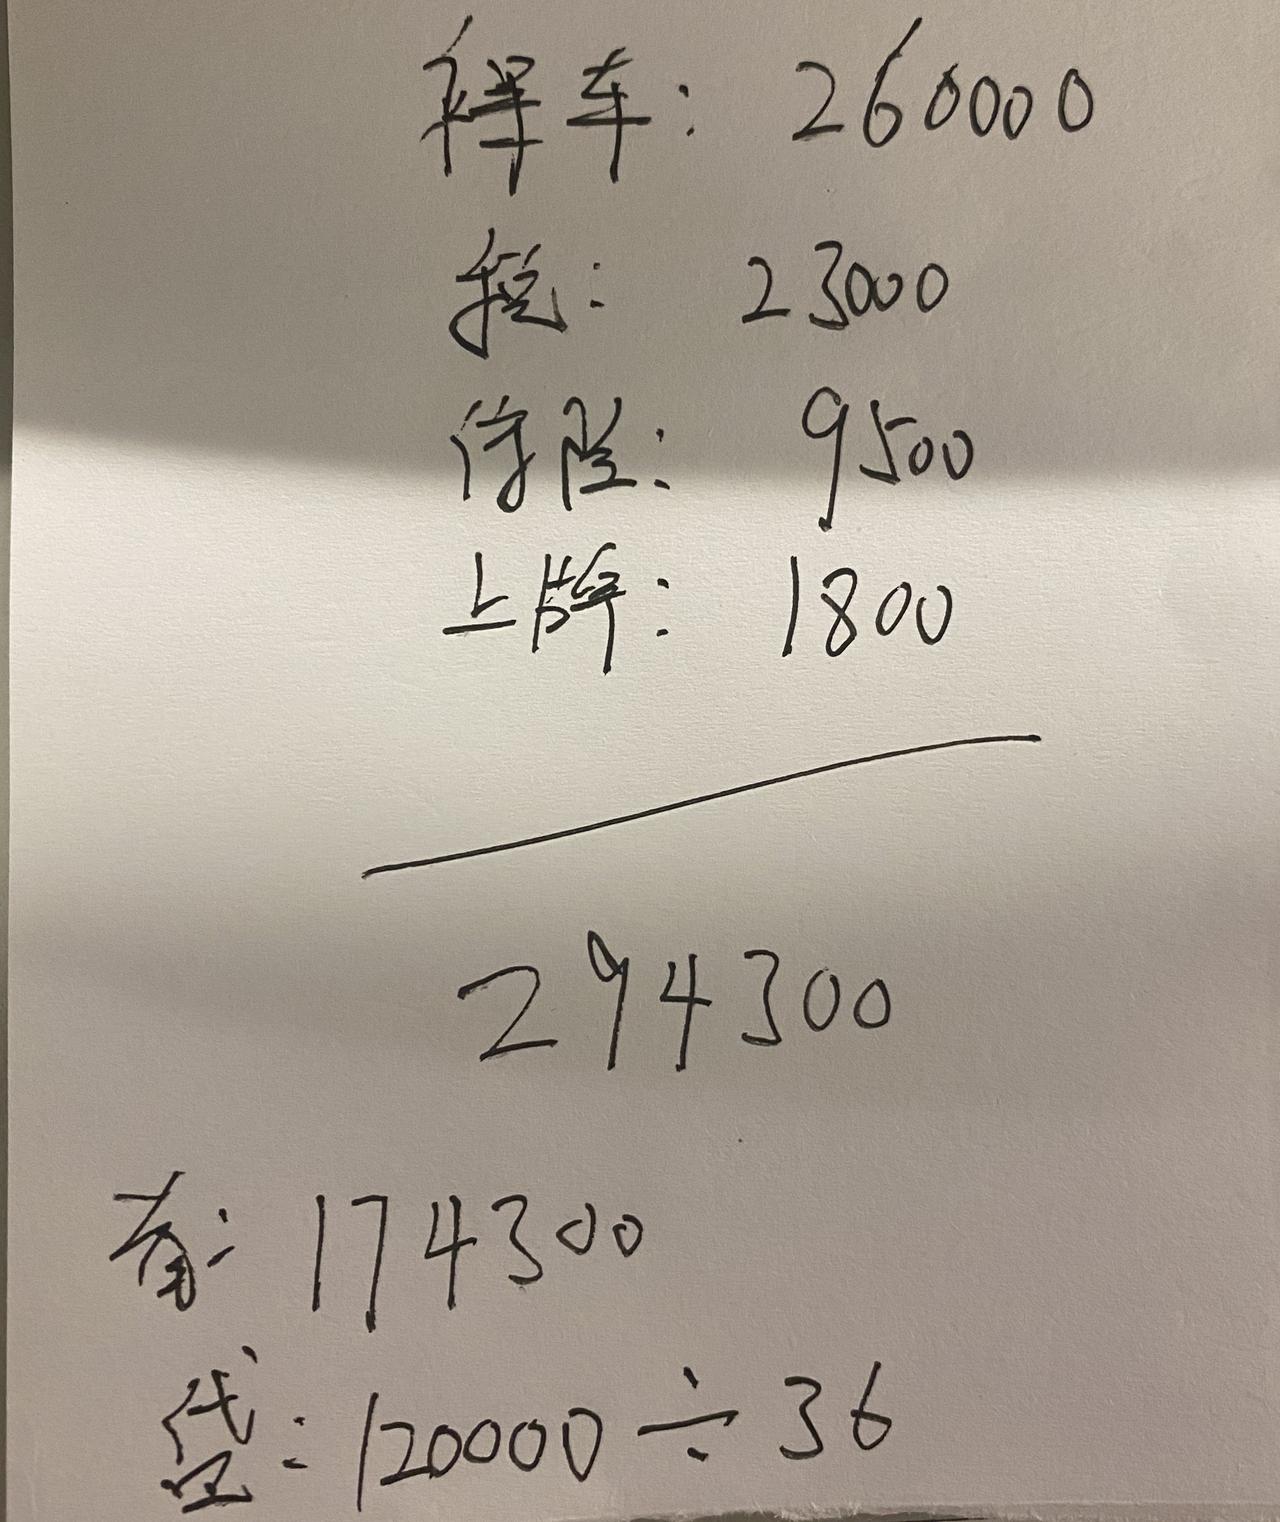 裸车：260000
税：23000
保险：9500
上牌：1800
294300
首：174300
贷：120000÷36